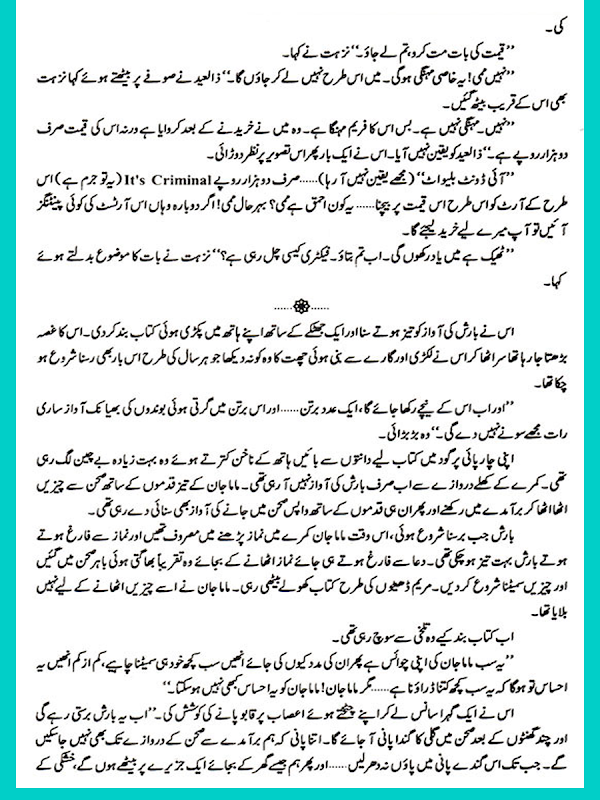 کی۔
’’قیمت کی بات مت کرو، تم لے جاؤ۔‘‘ نزہت نے کہا۔
’’نہیں ممی! یہ خاصی مہنگی ہوگی۔ میں اس طرح نہیں لے کر جاؤں گا۔‘‘ ذالعید نے صوفے پر بیٹھتے ہوئے کہا نزہت
بھی اس کے قریب بیٹھ گئیں۔
’’نہیں۔ مہنگی نہیں ہے۔ بس اس کا فریم مہنگا ہے۔ وہ میں نے خریدنے کے بعد کروایا ہے ورنہ اس کی قیمت صرف
دو ہزار روپے ہے۔‘‘ ذالعید کو یقین نہیں آیا۔ اس نے ایک بار پھر اس تصویر پر نظر دوڑائی۔
’’آئی ڈونٹ بلیواٹ‘‘ (مجھے یقین نہیں آ رہا)......صرف دو ہزار روپے It's Criminal (یہ تو جرم ہے) اس
طرح کے آرٹ کو اس طرح اس قیمت پر بیچنا...... یہ کون احمق ہے ممی؟ بہرحال ممی! اگر دوبارہ وہاں اس آرٹسٹ کی کوئی پینٹنگز
آئیں تو آپ میرے لیے خرید لیجئے گا۔
’’ٹھیک ہے میں یاد رکھوں گی۔ اب تم بتاؤ۔ فیکٹری کیسی چل رہی ہے؟‘‘ نزہت نے بات کا موضوع بدلتے ہوئے
کہا۔
اس نے بارش کی آواز کو تیز ہوتے سنا اور ایک جھٹکے کے ساتھ اپنے ہاتھ میں پکڑی ہوئی کتاب بند کر دی۔ اس کا غصہ
بڑھتا جا رہا تھا سر اٹھا کر اس نے لکڑی اور گارے سے بنی ہوئی چھت کا وہ کونہ دیکھا جو ہر سال کی طرح اس بار بھی رسنا شروع ہو
چکا تھا۔
’’اور اب اس کے نیچے رکھا جائے گا، ایک عدد برتن......اور اس برتن میں گرتی ہوئی بوندوں کی بھیانک آواز ساری
رات مجھے سونے نہیں دے گی۔‘‘ وہ بڑبڑائی۔
اپنی چارپائی پر گود میں کتاب لیے دانتوں سے بائیں ہاتھ کے ناخن کترتے ہوئے وہ بہت زیادہ بے چین لگ رہی
تھی۔ کمرے کے کھلے دروازے سے اب صرف بارش کی آواز نہیں آ رہی تھی۔ ماما جان کے تیز قدموں کے ساتھ صحن سے چیزیں
اٹھا اٹھا کر برآمدے میں رکھنے اور پھر ان ہی قدموں کے ساتھ واپس صحن میں جانے کی آواز بھی سنائی دے رہی تھی۔
بارش جب برسنا شروع ہوئی، اس وقت ماما جان کمرے میں نماز پڑھنے میں مصروف تھیں اور نماز سے فارغ ہوتے
ہوتے بارش بہت تیز ہو چکی تھی۔ دعا سے فارغ ہوتے ہی جائے نماز اٹھانے کے بجائے وہ تقریباً بھاگتی ہوئی باہر صحن میں گئیں
اور چیزیں سمیٹنا شروع کر دیں۔ مریم ڈھیٹوں کی طرح کتاب کھولے بیٹھی رہی۔ ماما جان نے اسے چیزیں اٹھانے کے لیے نہیں
بلایا تھا۔
اب کتاب بند کیے وہ تلخی سے سوچ رہی تھی۔
’’یہ سب ماما جان کی اپنی چوائس ہے پھر ان کی مدد کیوں کی جائے انھیں سب کچھ خود ہی سمیٹنا چاہیے، کم از کم انھیں یہ
احساس تو ہوگا کہ یہ سب کچھ کتنا ڈراؤنا ہے......مگر ماما جان! ماما جان کو یہ احساس کبھی نہیں ہو سکتا۔‘‘
اس نے ایک گہرا سانس لے کر اپنے چٹختے ہوئے اعصاب پر قابو پانے کی کوشش کی۔ ’’اب یہ بارش برستی رہے گی
اور چند گھنٹوں کے بعد صحن میں گلی کا گندا پانی آ جائے گا۔ اتنا پانی کہ ہم برآمدے سے صحن کے دروازے تک بھی نہیں جا سکیں
گے۔ جب تک اس گندے پانی میں پاؤں نہ دھر لیں......اور پھر ہم جیسے گھر کے بجائے ایک جزیرے پر بیٹھے ہوں گے، خشکی کے